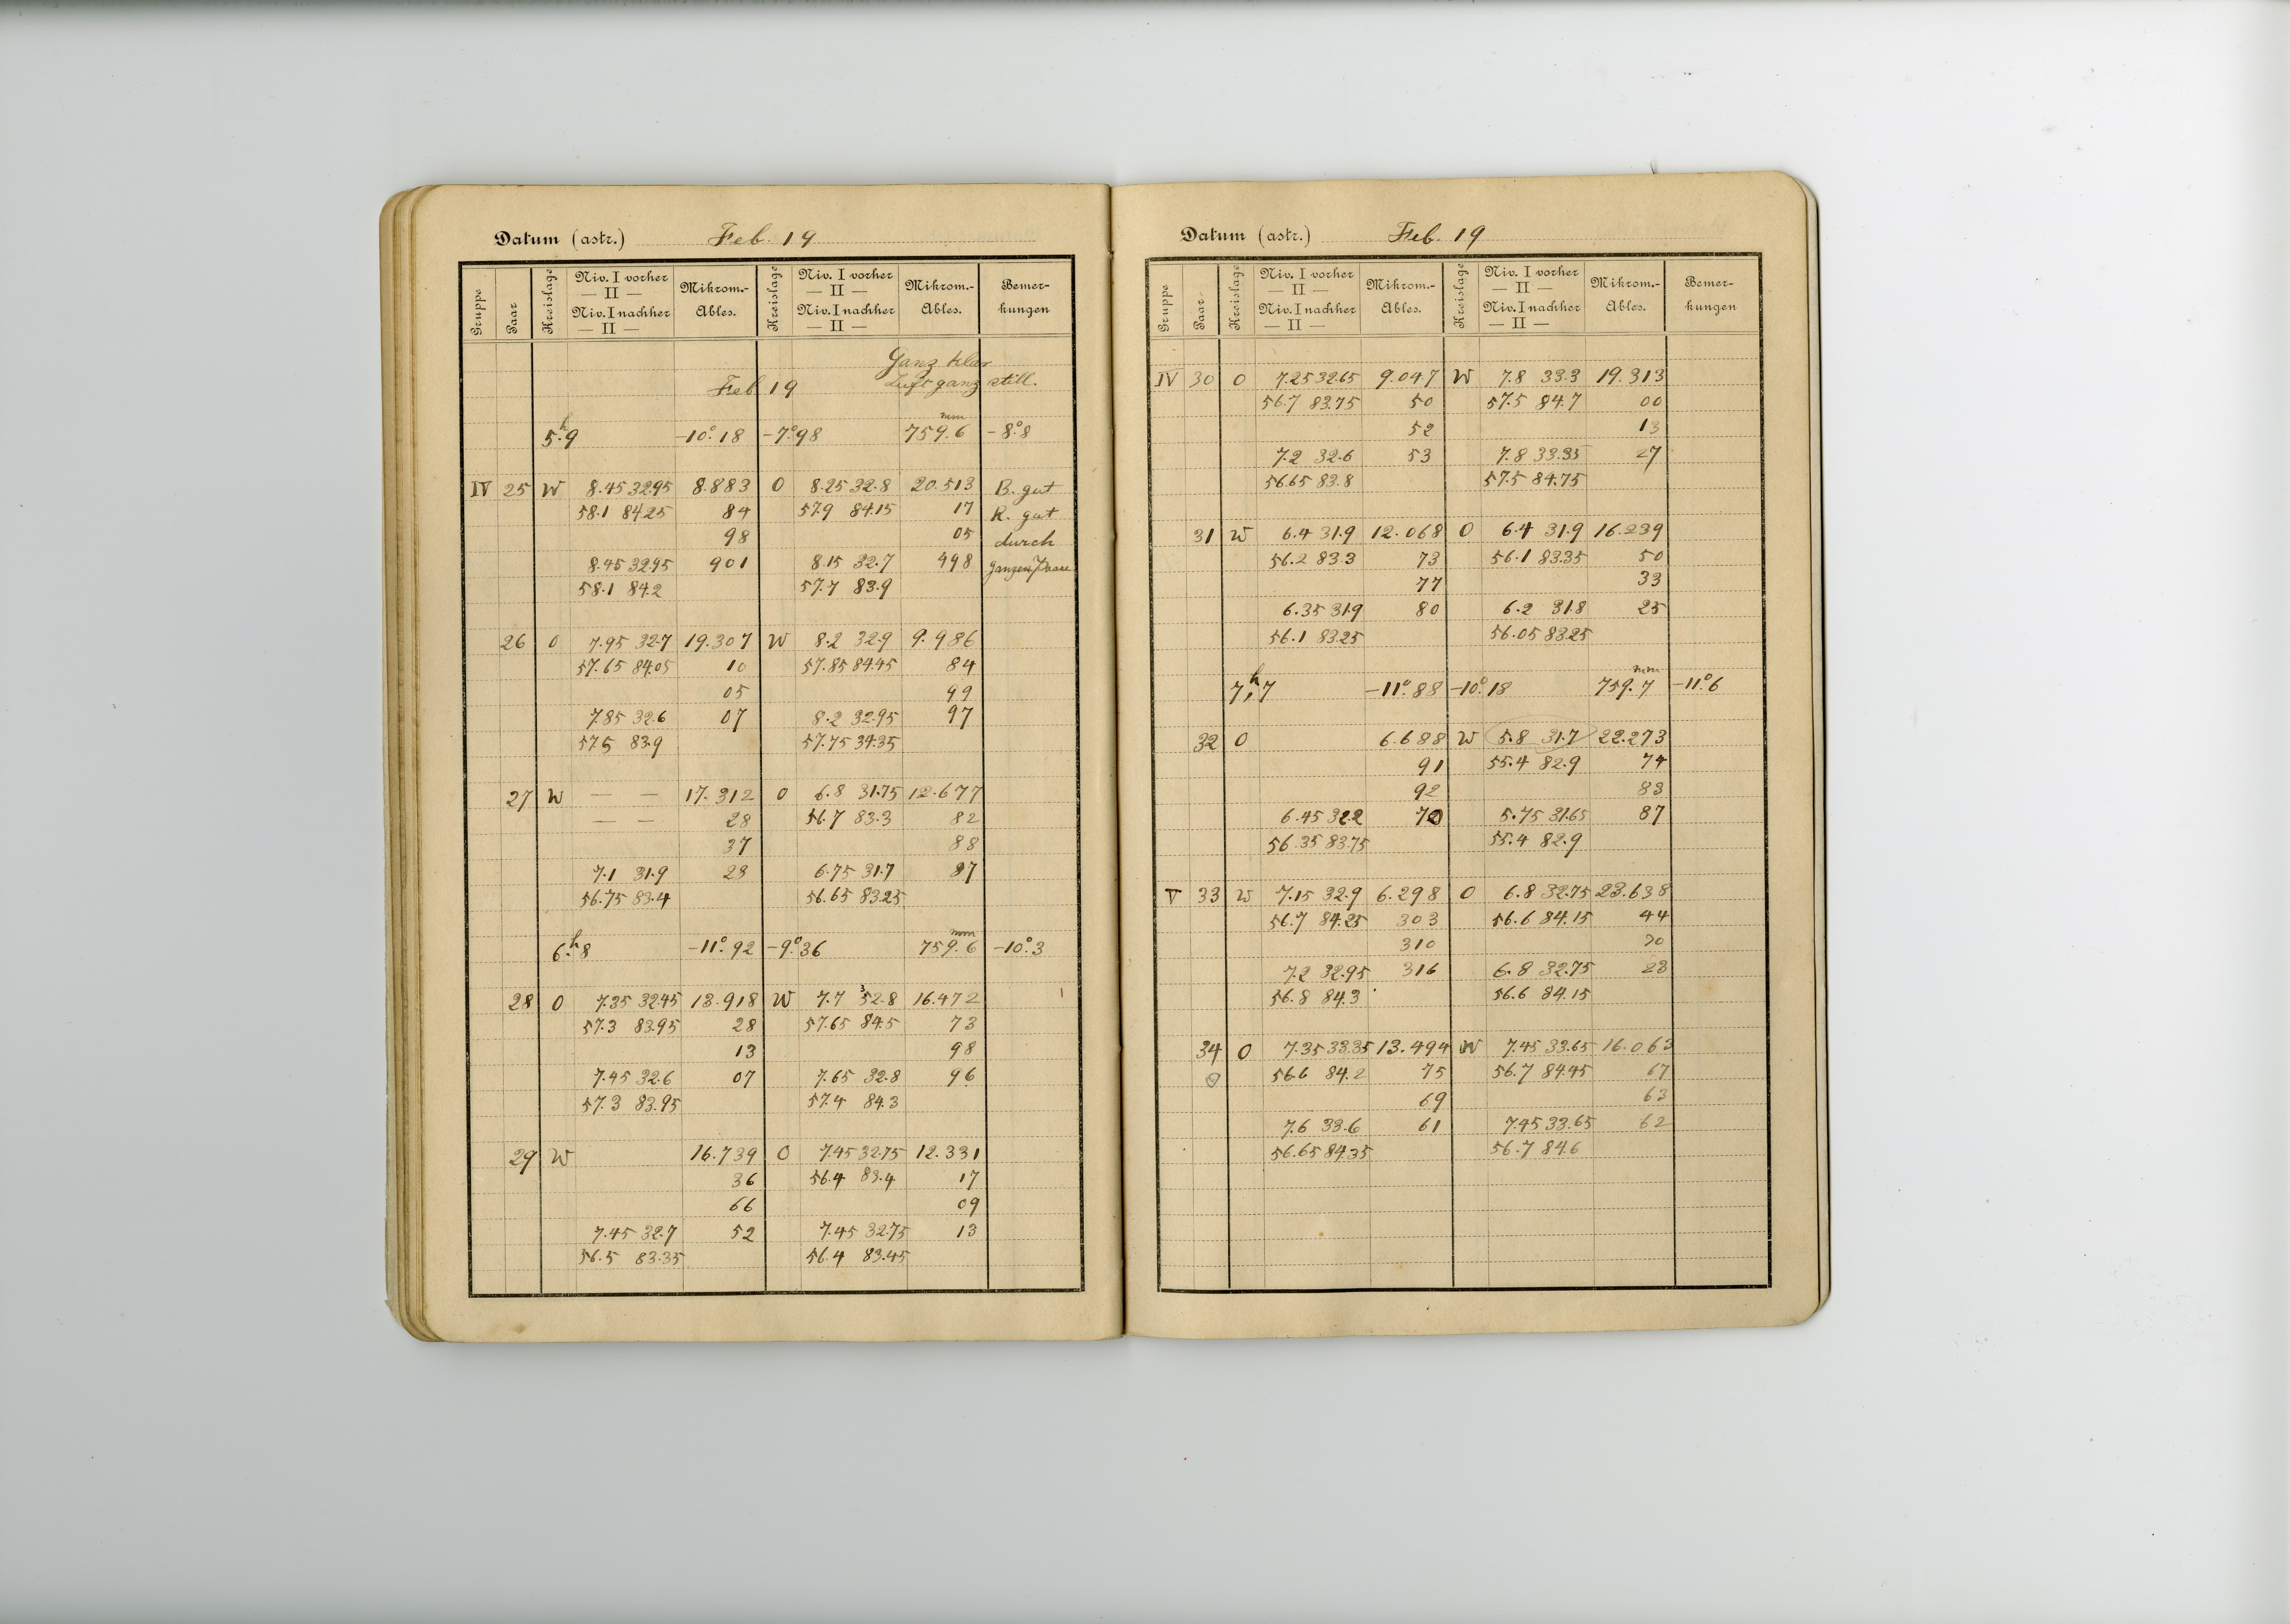 Datum (astr.) Feb. 19
Gruppe Paar Kreislage Niv. I vorher — II — Niv. I nachher — II — Mikrom.-Ables. Kreislage Niv. I vorher — II — Niv. I nachher — II — Mikrom.-Ables. Bemer-kungen
Ganz klar
Feb 19 Luft ganz still.
5h.9 -10°.18 -7°.98 759.6 mm -8°.8
IV 25 W 8.45 32.95 8.883 O 8.25 32.8 20.513 B. gut
58.1 84.25 84 57.9 84.15 17 R. gut
98 05 durch
8.45 32.95 901 8.15 32.7 498 ganzen Paare
58.1 84.2 57.7 83.9
26 O 7.95 32.7 19.307 W 8.2 32.9 9.986
57.65 84.05 10 57.85 84.45 84
05 99
7.85 32.6 07 8.2 32.95 97
57.5 83.9 57.75 34.35
27 W — — 17.312 O 6.8 31.75 12.677
— — 28 56.7 83.3 82
37 88
7.1 31.9 28 6.75 31.7 87
56.75 83.4 56.65 83.25
6h.8 -11°.92 -9°.36 759.6 mm -10°.3
28 O 7.35 32.45 13.918 W 7.7 32.8 16.472
57.3 83.95 28 57.65 84.5 73
13 98
7.45 32.6 07 7.65 32.8 96
57.3 83.95 57.4 84.3
29 W 16.739 O 7.45 32.75 12.331
36 56.4 83.4 17
66 09
7.45 32.7 52 7.45 32.75 13
56.5 83.35 56.4 83.45
Datum (astr.) Feb. 19
Gruppe Paar Kreislage Niv. I vorher — II — Niv. I nachher — II — Mikrom.-Ables. Kreislage Niv. I vorher — II — Niv. I nachher — II — Mikrom.-Ables. Bemer-kungen
IV 30 O 7.25 32.65 9.047 W 7.8 33.3 19.313
56.7 83.75 50 57.5 84.7 00
52 13
7.2 32.6 53 7.8 33.35 27
56.65 83.8 57.5 84.75
31 W 6.4 31.9 12.068 O 6.4 31.9 16.239
56.2 83.3 73 56.1 83.35 50
77 33
6.35 31.9 80 6.2 31.8 25
56.1 83.25 56.05 83.25
7h.7 -11°.88 -10°.18 759.7 mm -11°.6
32 O 6.688 W 5.8 31.7 22.273
91 55.4 82.9 74
92 83
6.45 32.2 70 5.75 31.65 87
56.35 83.75 55.4 82.9
V 33 W 7.15 32.9 6.298 O 6.8 32.75 23.638
56.7 84.25 303 56.6 84.15 44
310 30
7.2 32.95 316 6.8 32.75 23
56.8 84.3 56.6 84.15
34 O 7.35 33.35 13.494 W 7.45 33.65 16.063
56.6 84.2 75 56.7 84.45 67
69 63
7.6 33.6 61 7.45 33.65 62
56.65 84.35 56.7 84.6